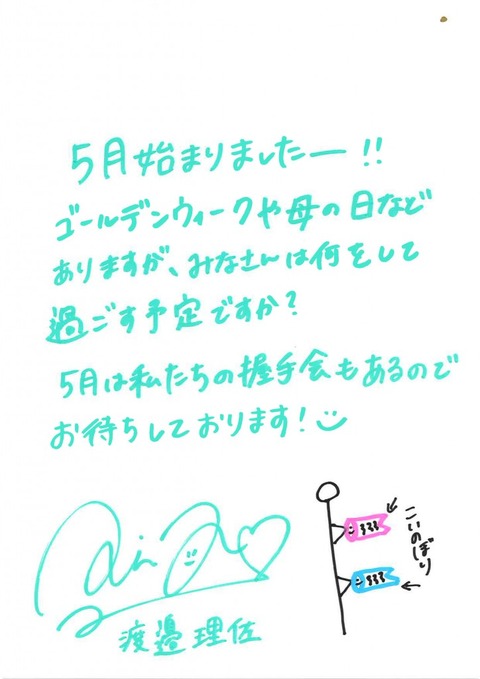 5月始まりましたー!!
ゴールデンウィークや母の日など
ありますが、みなさんは何をして
過ごす予定ですか?
5月は私たちの握手会もあるので
お待ちしております!
渡邉理佐
こいのぼり